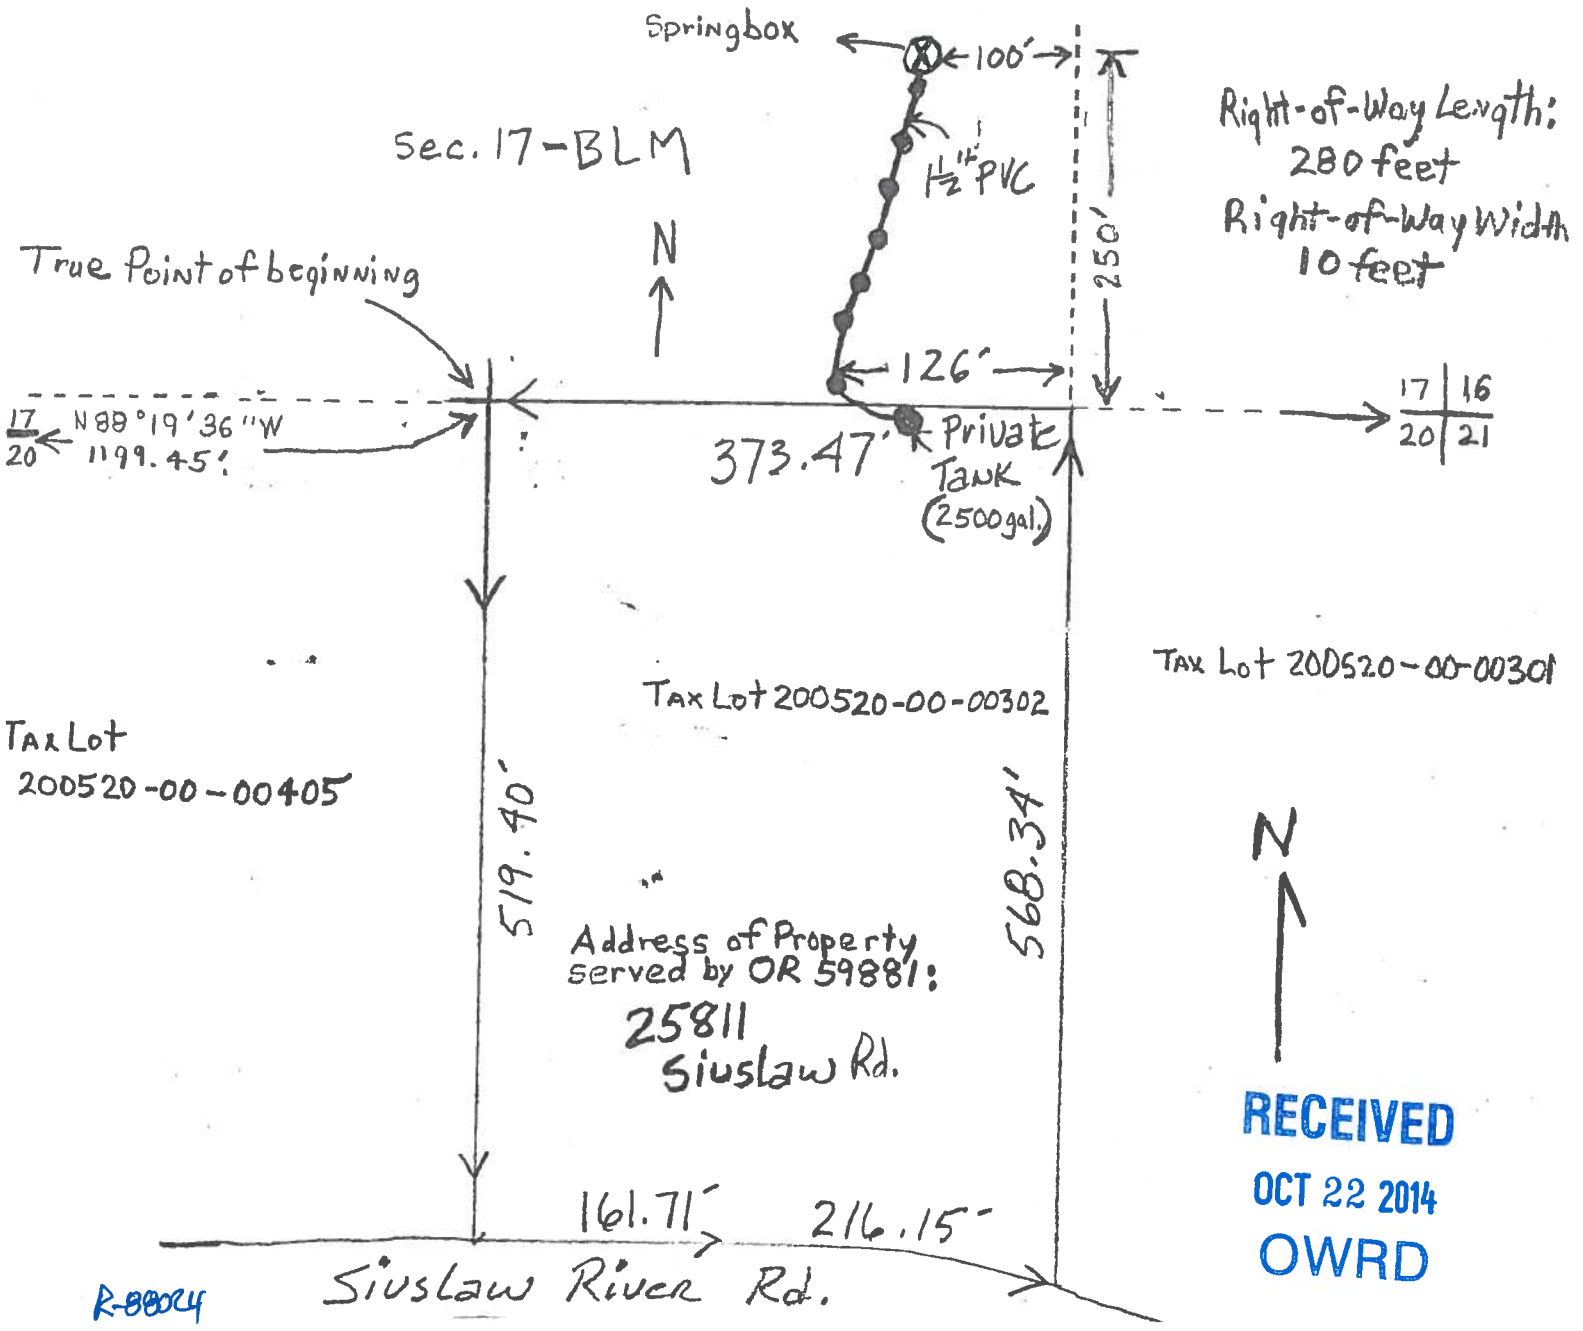 Springbox
100'
Sec. 17-BLM
1 1/2" PVC
250'
Right-of-Way Length:
280 feet
Right-of-Way Width
10 feet
N
True Point of beginning
126'
17 16
20 21
17
20
N88°19'36"W
1199.45'
373.47'
Private
Tank
(2500gal.)
Tax Lot 200520-00-00301
Tax Lot 200520-00-00302
Tax Lot
200520-00-00405
519.40'
568.34'
N
Address of Property
served by OR 59881:
25811
Siuslaw Rd.
RECEIVED
OCT 22 2014
OWRD
161.71'
216.15'
Siuslaw River Rd.
R-88024